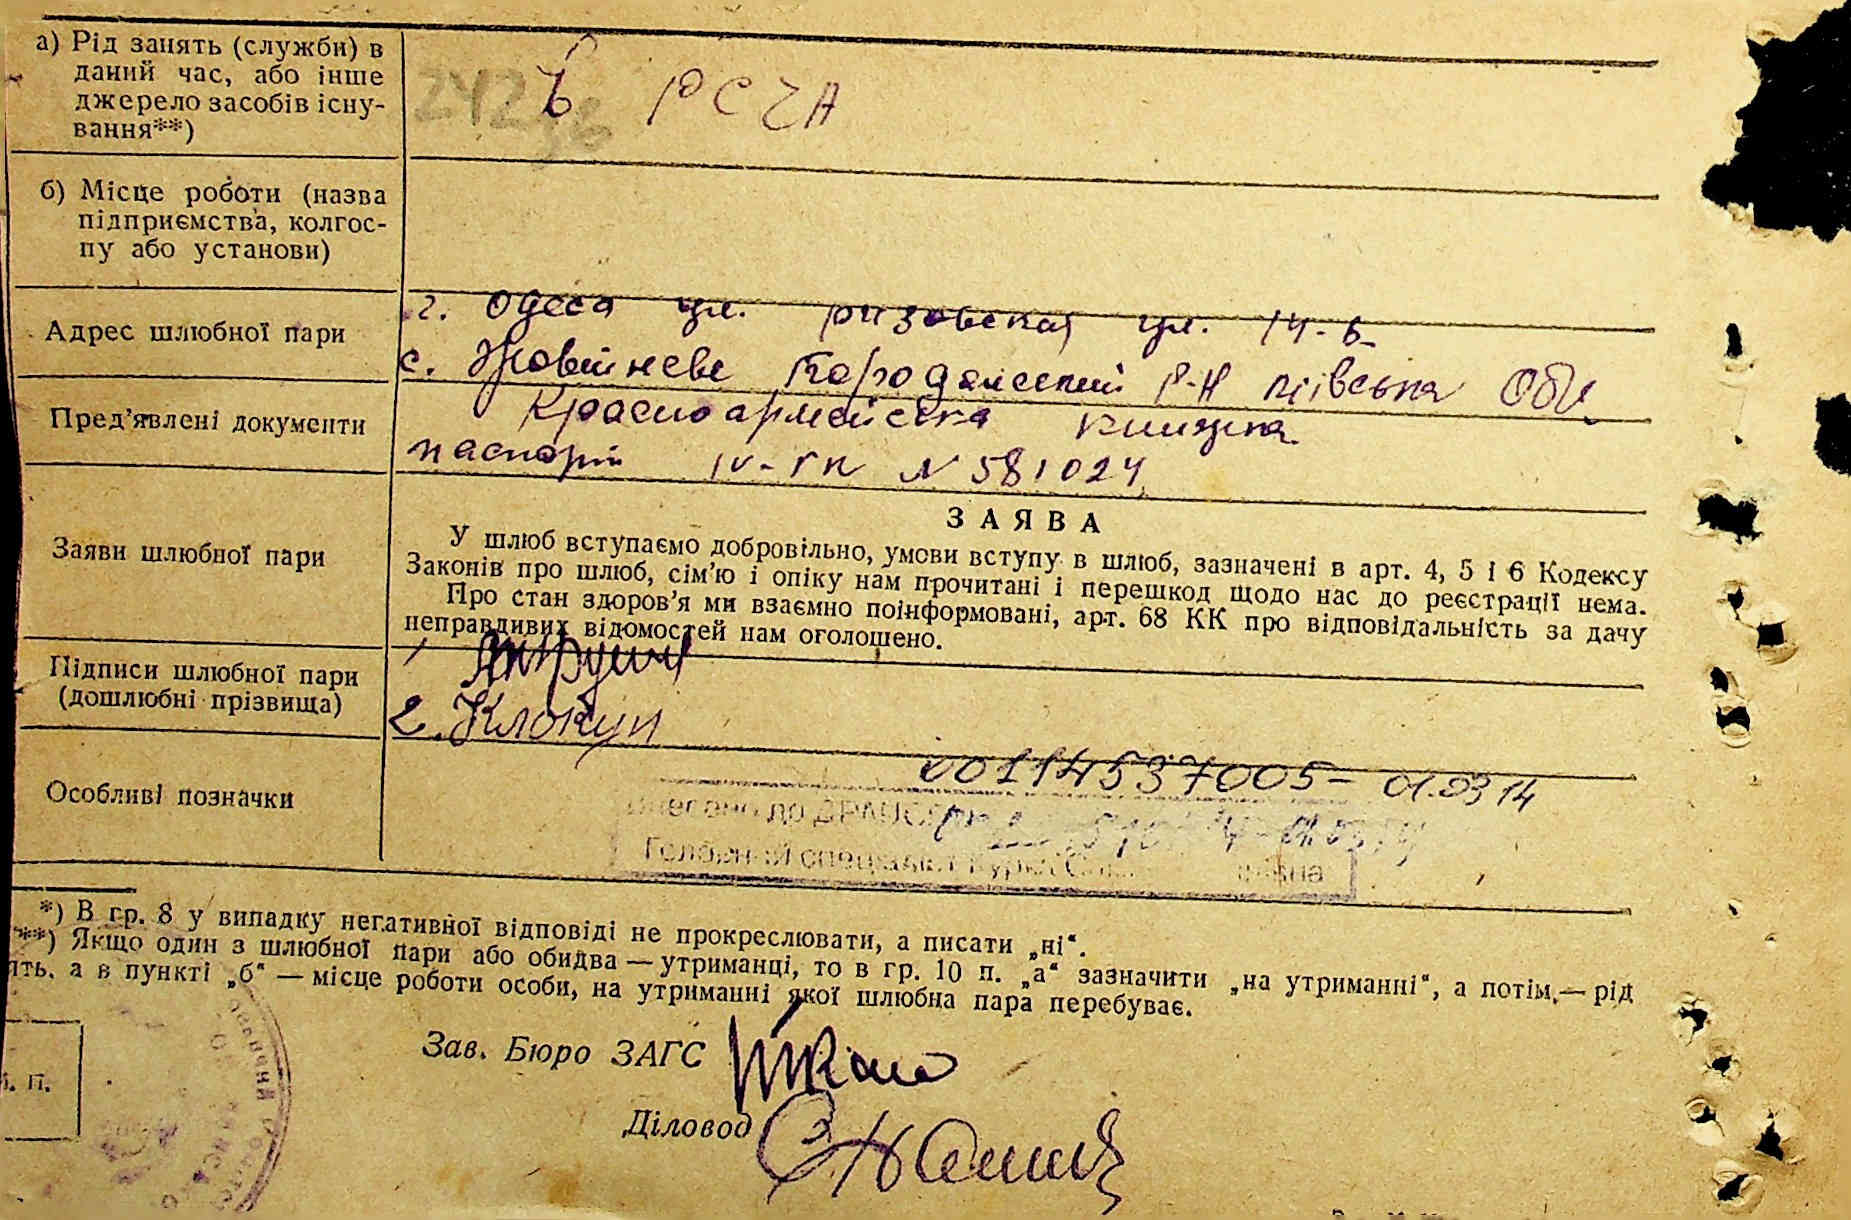 а) Рід занять (служби) в
даний час, або інше
джерело засобів існу-
вання**)
в РСЧА
б) Місце роботи (назва
підприємства, колгос-
пу або установи)
Адрес шлюбної пари
г. Одеса ул. ризовская ул. 14-в
с. Жовтневе Бородянський р-н київська обл
Пред’явлені документи
Красноармейська книжка
паспорт N 581024
Заяви шлюбної пари
ЗАЯВА
У шлюб вступаємо добровільно, умови вступу в шлюб, зазначені в арт. 4, 5 і 6 Кодексу
Законів про шлюб, сім’ю і опіку нам прочитані і перешкод щодо нас до реєстрації нема.
Про стан здоров’я ми взаємно поінформовані, арт. 68 КК про відповідальність за дачу
неправдивих відомостей нам оголошено.
Підписи шлюбної пари
(дошлюбні прізвища)
1
2. Клокун
Особливі позначки
00114537005 - 01.03 14
до ДРАЦС
Головний спеціаліст
*) В гр. 8 у випадку негативної відповіді не прокреслювати, а писати „ні“.
**) Якщо один з шлюбної пари або обидва — утриманці, то в гр. 10 п. „а“ зазначити „на утриманні“, а потім — рід
ять, а в пункті „б“ — місце роботи особи, на утриманні якої шлюбна пара перебуває.
Зав. Бюро ЗАГС
Діловод
П.